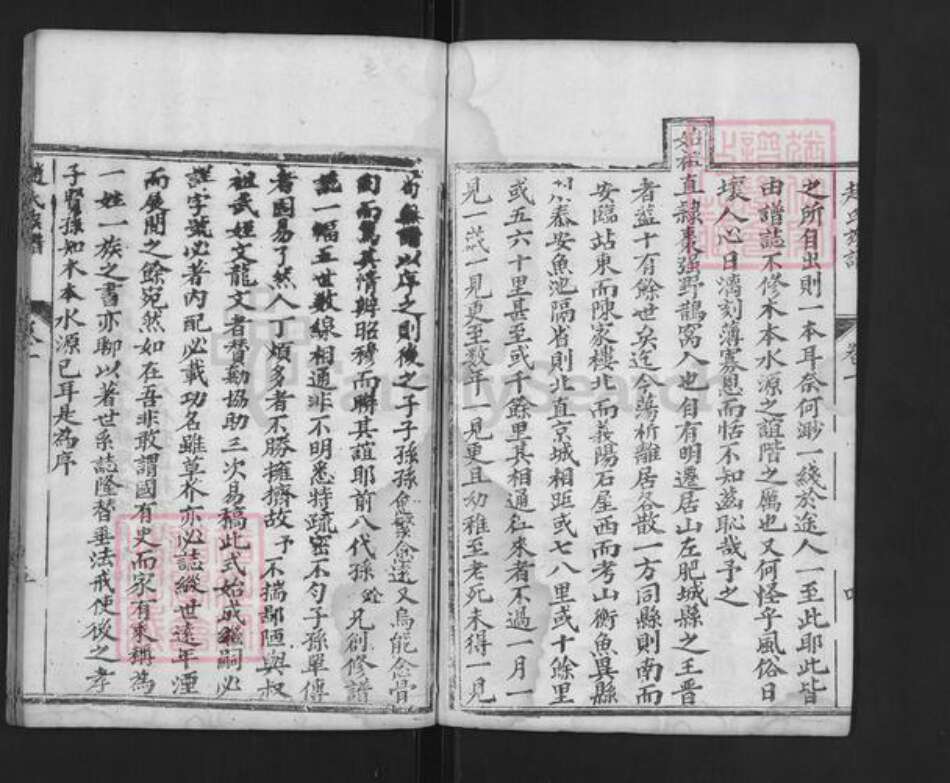 之所自出則一本耳奈何渺一綫於途人一至此耶此皆
由譜誌不修木本水源之誼階之厲也又何怪乎風俗日
壞人心日漓刻薄寡恩而恬不知羞恥哉予之
始祖直隸棗強野鵲窩人也自有明遷居山左肥城縣之王晉
者蓋十有餘世矣迄今蕩析離居各散一方同縣則南而
安臨站東而陳家樓北而義陽石屋西而考山衡魚異縣
則泰安魚池隔省則北直京城相距或七八里或十餘里
或五六十里甚至或千餘里其相通往來者不過一月一
見一歲一見更至數年一見更且幼稚至老死未得一見
苟無譜以序之則後之子子孫孫愈繁愈遠又烏能念骨
肉而篤其情辨昭穆而聯其誼耶前八代孫 兄創修譜
誌一幅五世數線相通非不明悉特疏密不勻子孫單傳
者固易了然人丁煩多者不勝擁擠故予不揣鄙陋與叔
祖武 姪文龍文者贊勷協助三次易稿此式始成繼嗣必
謹字號必著內配必載功名雖草芥亦必誌縱世遠年湮
而展閱之餘宛然如在吾非敢謂國有史而家有乘稱為
一姓一族之書亦聊以著世系誌隆替垂法戒使後之孝
子賢孫知木本水源已耳是為序
趙氏族譜 卷一
FamilySearch